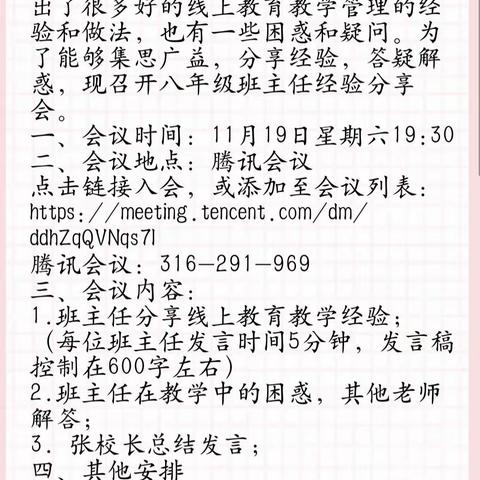 出了很多好的线上教育教学管理的经
验和做法，也有一些困惑和疑问。为
了能够集思广益，分享经验，答疑解
惑，现召开八年级班主任经验分享
会。
一、会议时间：11月19日星期六19:30
二、会议地点：腾讯会议
点击链接入会，或添加至会议列表：
https://meeting.tencent.com/dm/
ddhZqQVNqs7l
腾讯会议：316-291-969
三、会议内容：
1.班主任分享线上教育教学经验；
（每位班主任发言时间5分钟，发言稿
控制在600字左右）
2.班主任在教学中的困惑，其他老师
解答；
3. 张校长总结发言；
四、其他安排